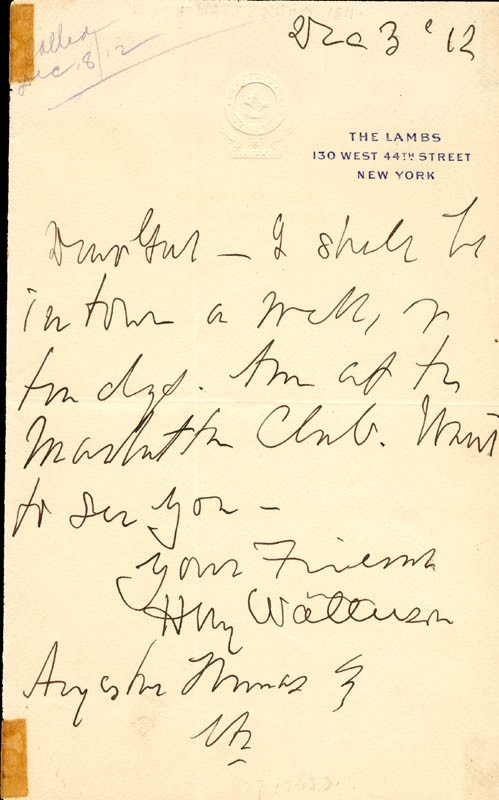 Called
Dec. 8/12
Dec 3 '12
THE LAMBS
130 WEST 44TH STREET
NEW YORK
Dear Gus — I shall be
in town a week, or
ten dys. Am at the
Manhattan Club. Want
to see you —
Your Friend
Henry Watterson
Augustus Thomas Esq